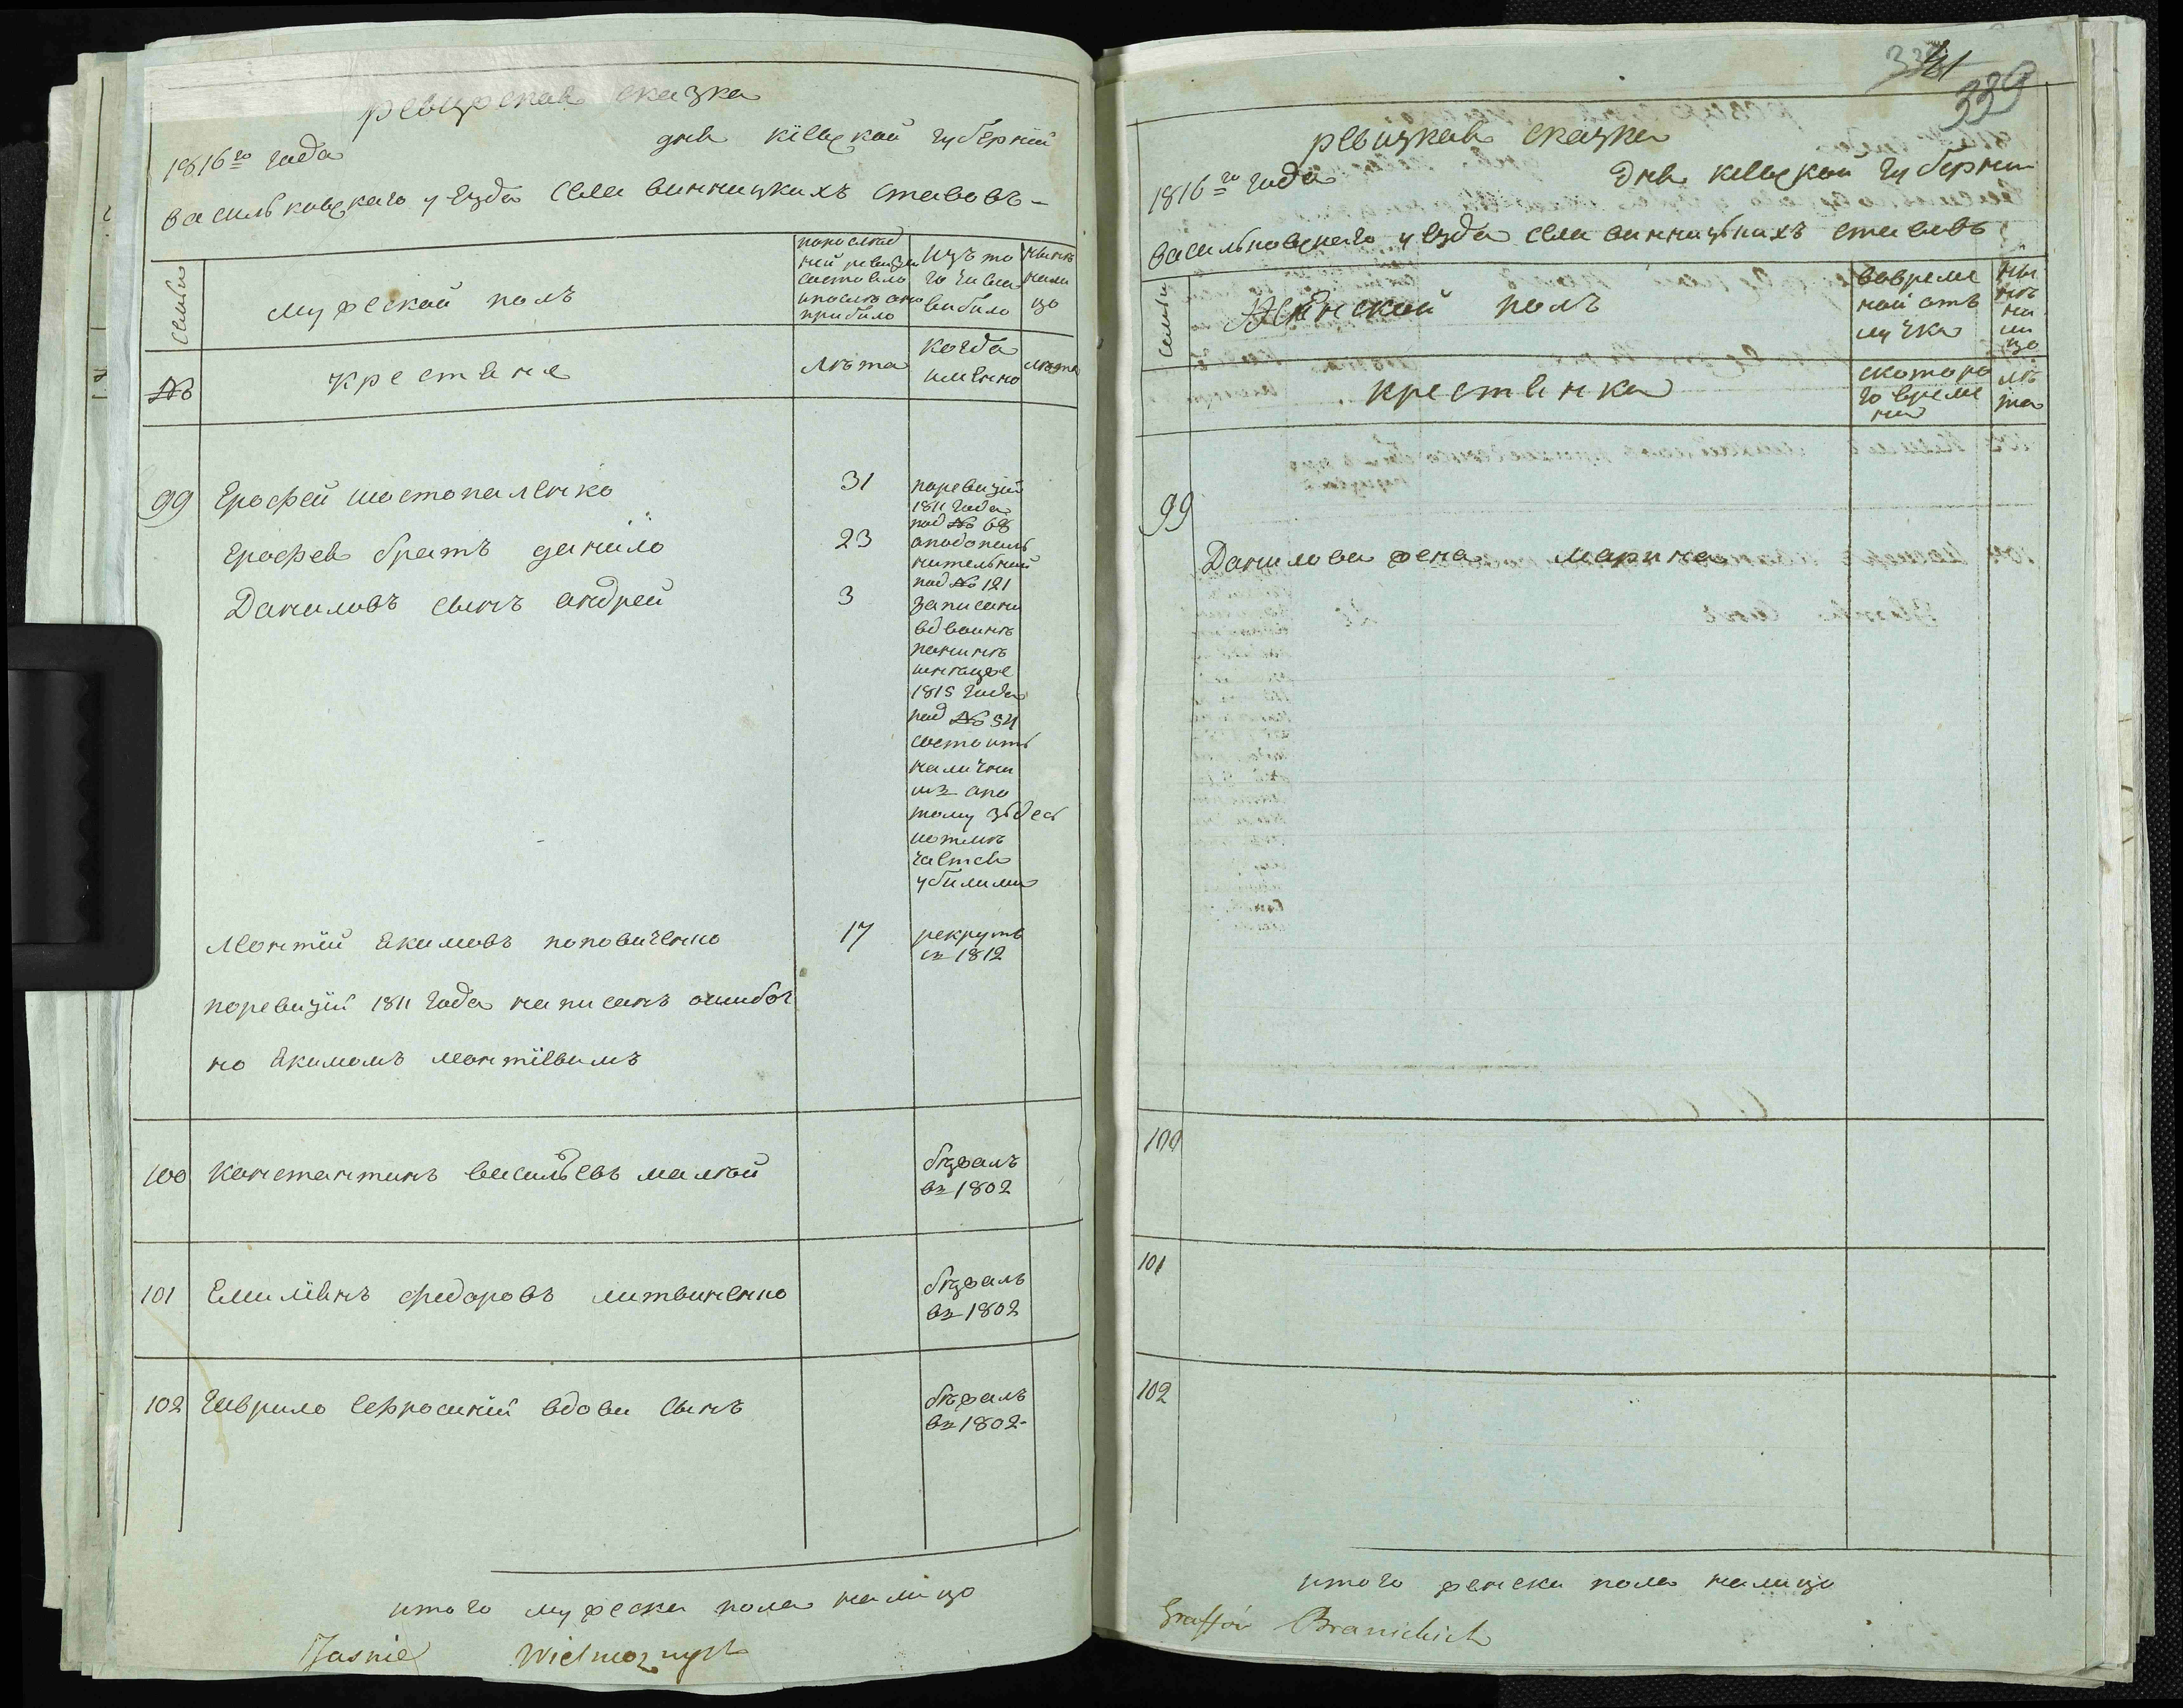 ревизская сказка
1816го года дня кіевской губерніи
васильковского уезда села винницкихъ ставовъ-
семьи
мужеской полъ
по послѣд
ней ревизіи
состояло
и послѣ оно
прибило
изъ то
го числа
вибило
нынѣ
нали
цо
№
крестяне
лѣта
когда
именно
лѣта
99
Ерофей шостопаленко
31
поревизіи
1811 года
под № 68
Ерофея братъ данило
23
ополнительній
под № 121
Даниловъ сынъ андрей
3
записани
1815 года
под № 54
состоитъ
налични
му
потому здесь
убилими
Леонтій Якимовъ поповиченко
17
рекрутъ
въ 1812
поревизіи 1811 года написанъ ошибоч
но Якимомъ леонтіевимъ
100
Константинъ васильевъ малый
бѣжалъ
въ 1802
101
Емиліянъ федоровъ литвиненко
бѣжалъ
въ 1802
102
Гаврило Ефросиніи вдови сынъ
бѣжалъ
въ 1802-
итого мужеска пола налицо
Jasnie Wielmoznych
341
339
ревизкая сказка
1816го года дня кіевской губерніи
васильковского уезда села винницкихъ ставовъ
семьи
Женской полъ
вовреме
ной отъ
лучки
ны
нѣ
на
ли
цо
крестянки
скоторо
го време
ни
лѣ
та
99
Данилова жена марина
100
101
102
итого женска пола налицо
Graffów Branickich